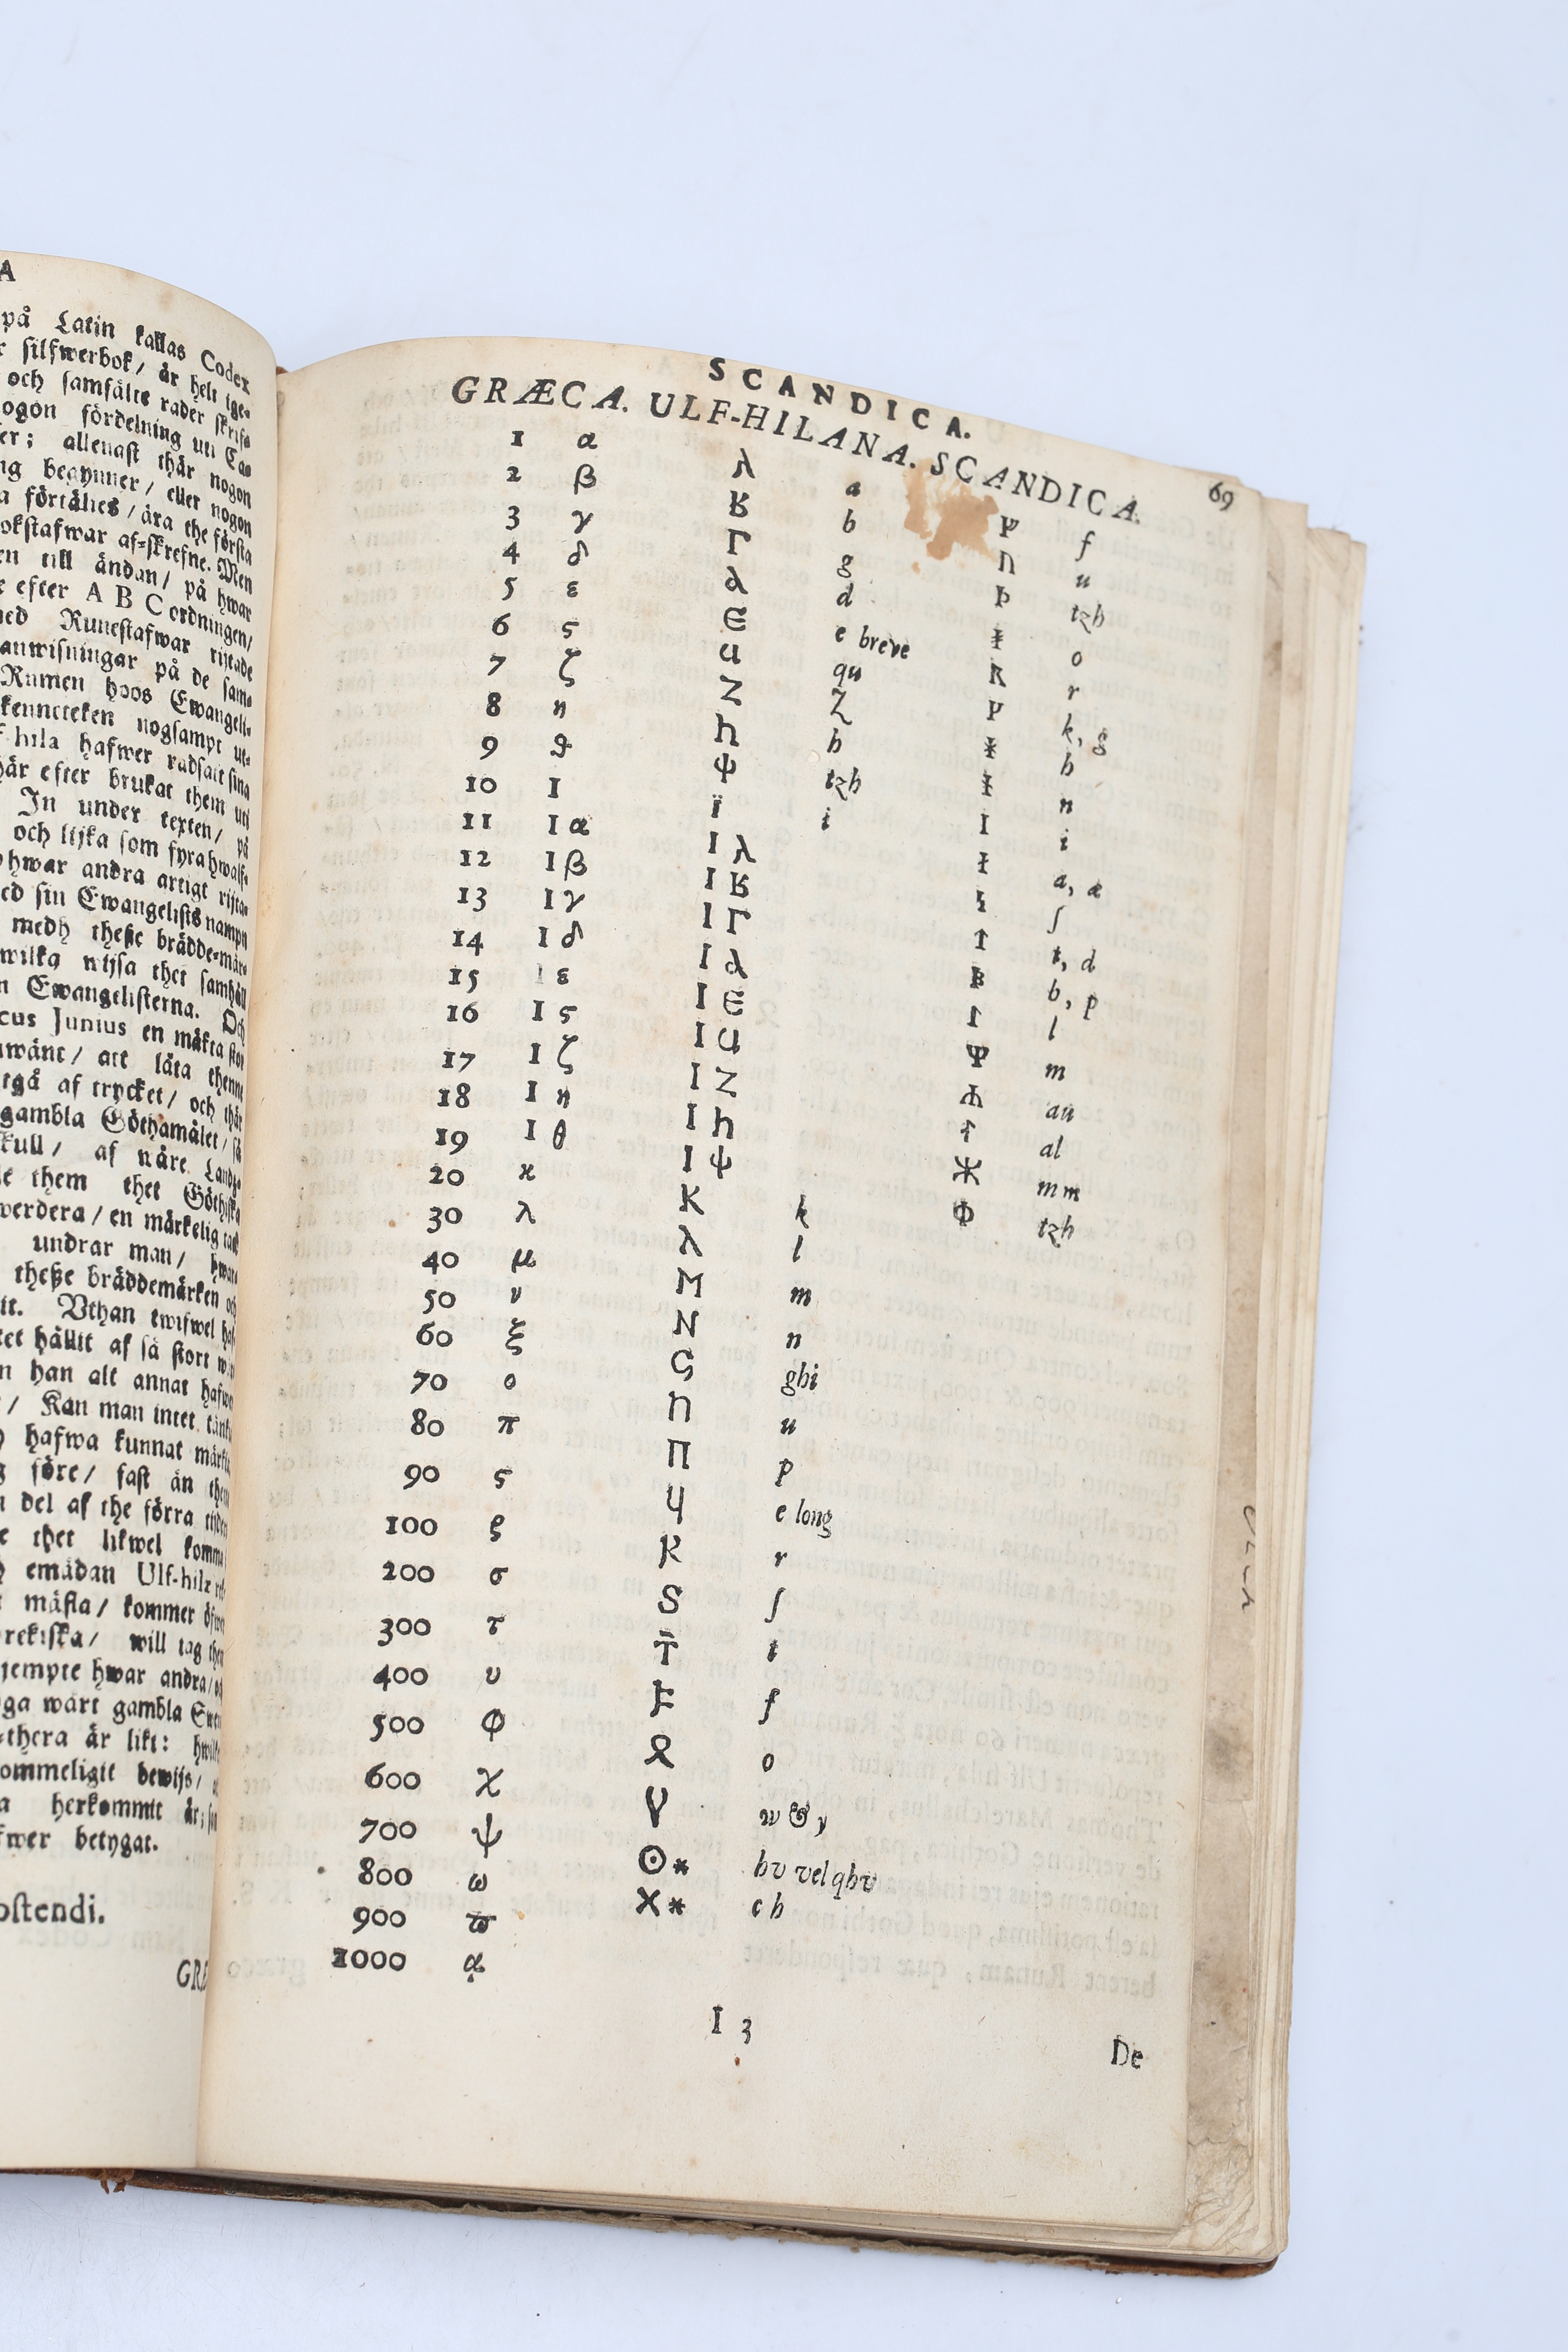 A
på Latin kallas Codex
silfwerbok/ är helt ige-
och samfälte rader skrifs
ogon fördelning uti Ca-
er; allenast thär nogon
ng begynner/ eller nogon
a förtälies/ ära the första
okstafwar af-skrefne. Men
en till ändan/ på hwar
e efter A B C ordningen/
ned Runestafwar rijtade
anwisningar på de sam-
Rumen hoos Ewangeli-
kenneteken nogsampt ut-
hila hafwer radsatt sina
här efter brukat them uti
In under texten/ på
och lijka som fyra hwalf-
hwar andra artigt rijta-
ed sin Ewangelists nampn
medh theße brädde-mär-
wilka wijsa thet samhäll
n Ewangelisterna. Och
cus Junius en mäkta stor
nwänt/ att låta thenne
tgå af trycket/ och thär
gambla Göthamålet/ så
kull/ af näre Lands-
e them thet Göthiska
werdera/ en märkelig tack
undrar man/ hwars
theße bräddemärken och
tt. Vthan twifwel haf-
et hållit af så stort
n han alt annat hafwer
/ Kan man intet tänk
hafwa kunnat märkt
g före/ fast än them
n del af the förra tijder
e thet likwel komm
emådan Ulf-hila
mästa/ kommer öfwer
rekiska/ will tag ther
jempte hwar andra/ så
ga wårt gambla Swen
-thera är likt: hwilke
ommeligit bewijs/
a herkommit är;
fwer betygat.
ostendi.
GRÆ
SCANDICA. 69
GRÆCA. ULF-HILANA. SCANDICA.
1 α 𐌻 a ᚠ f
2 β 𐌱 b ᚢ u
3 γ Γ g ᚦ tzh
4 δ 𐌳 d ᚮ o
5 ε Є e breve ᚱ r
6 ς u qu ᚴ k, g
7 ζ Z Z ᚼ h
8 η h h ᚾ n
9 ϑ ψ tzh I i
10 I ï i ᛅ a, æ
11 I α I λ ᛋ ſ
12 I β I 𐌱 ᛏ t, d
13 I γ I Γ ᛒ b, p
14 I δ I 𐌳 ᛚ l
15 I ε I Є ᛘ m
16 I ς I u ᛮ au
17 I ζ I Z ᛯ al
18 I η I h ᛯ mm
19 I θ I ψ ᛰ tzh
20 κ K k
30 λ λ l
40 μ M m
50 ν N n
60 ξ G ghi
70 ο ᚢ u
80 π Π p
90 ς Ч e long
100 ρ R r
200 σ S ſ
300 τ T t
400 υ F f
500 φ 𐍉 o
600 χ V w & y
700 ψ ⊙* hv vel qhv
800 ω X* ch
900 ϖ
1000 ͵α
I 3
De